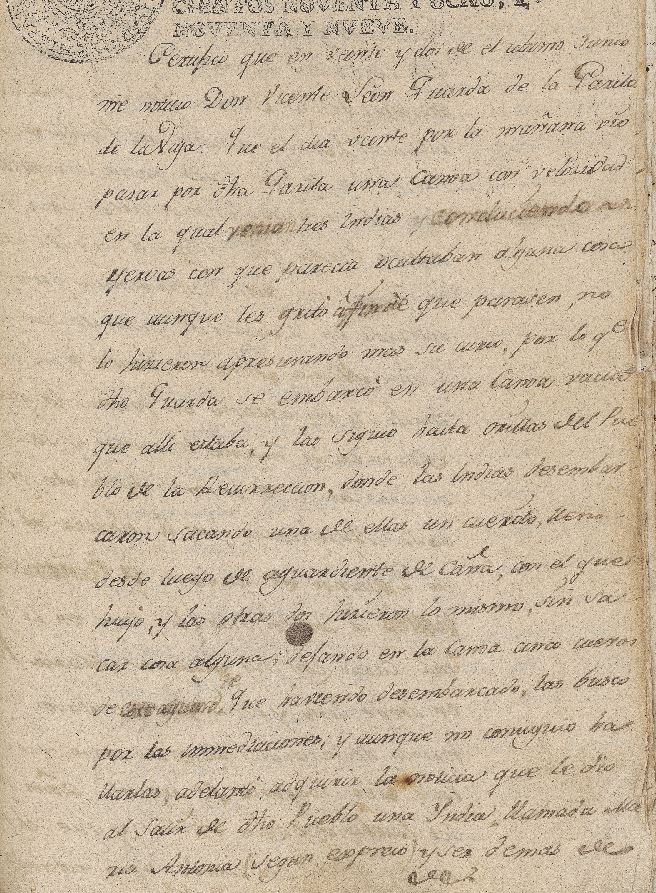 CIENTOS NOVENTA Y OCHO, Y
NOVENTA Y NUEVE.
Certifico que en veinte y dos de el ultimo Junio
me noticio Don Vicente Leon Guarda de la Garita
de la Viga. Que el dia veinte por la mañana vio
pasar por dha Garita una Canoa con velocidad
en la qual venian tres Indias y conduciendo
yervas con que parecia ocultaban alguna cosa
que aunque les gritó á fin de que parasen, no
lo hicieron apresurando mas su curso, por lo qe
dho Guarda se embarcó en una Canoa vacia
que alli estaba, y las siguio hasta orillas del Pue
blo de la Resurreccion, donde las Indias desembar
caron, sacando una de ellas un cuerito, lleno
desde luego de aguardiente de Caña, con el que
huyo, y las otras dos hicieron lo mismo, sin sa
car cosa alguna; dejando en la Canoa cinco cueros
de Que haviendo desembarcado, las busco
por las inmediaciones; y aunque no consiguio ha
llarlas, adelantó adquirir la noticia que le dio
al salir de dho Pueblo una India, llamada Ma
ria Antonia (segun expreso) y ser demas de